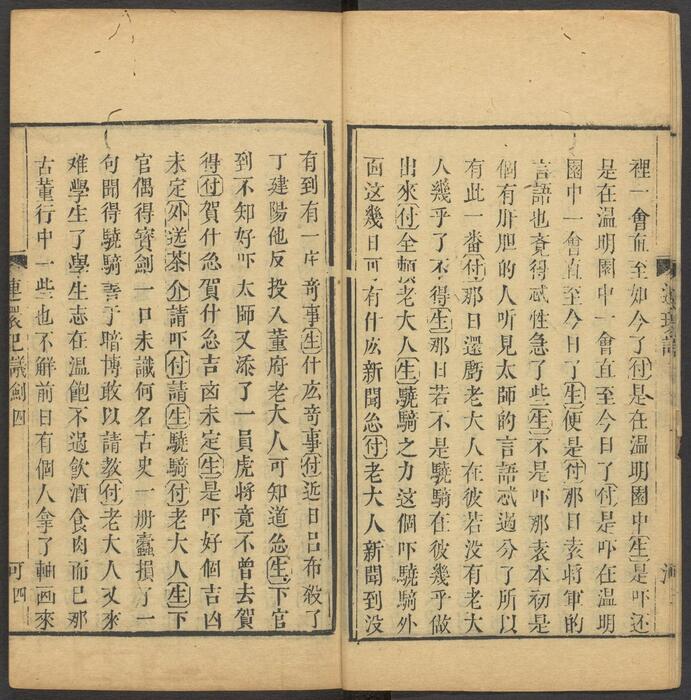 裡一會直至如今了付是在温明園中生是吓还
是在温明園中一會直至今日了付是吓在温明
園中一會直至今日了生便是付那日袁將軍的
言語也竟得忒性急了些生不是吓那袁本初是
個有肝胆的人听見太師的言語忒過分了所以
有此一番付那日還虧老大人在彼若没有老大
人幾乎了不得生那日若不是驍騎在彼幾乎做
出來付全頼老大人生驍騎之力这個吓驍騎外
面这幾日可有什庅新聞怹付老大人新聞到没
有到有一庄竒事生什庅竒事付近日吕布殺了
丁建陽他反投入董府老大人可知道怹生下官
到不知好吓太師又添了一員虎将竟不曾去賀
得付賀什怹賀什怹吉凶未定生是吓好個吉凶
未定外送茶介請吓付請生驍騎付老大人生下
官偶得寳劍一口未識何名古史一册蠹損了一
句聞得驍騎善于瞻博敢以請教付老大人又來
难學生了學生志在温飽不過飲酒食肉而已那
古董行中一些也不觧前日有個人拿了軸画來
連環記議劍四
可四